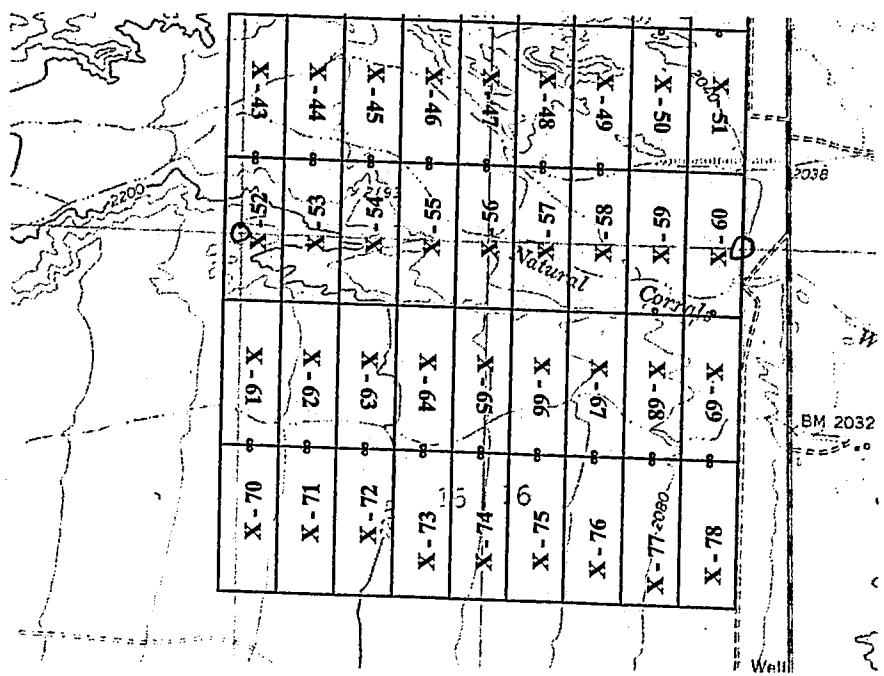 X - 43
X - 44
X - 45
X - 46
X - 47
X - 48
X - 49
X - 50
X - 51
2040
2038
2200
2193
X - 52
X - 53
X - 54
X - 55
X - 56
X - 57
X - 58
X - 59
X - 60
Natural
Corrals
X - 61
X - 62
X - 63
X - 64
X - 65
X - 66
X - 67
X - 68
X - 69
W
BM 2032
15
16
X - 70
X - 71
X - 72
X - 73
X - 74
X - 75
X - 76
X - 77
2080
X - 78
Well